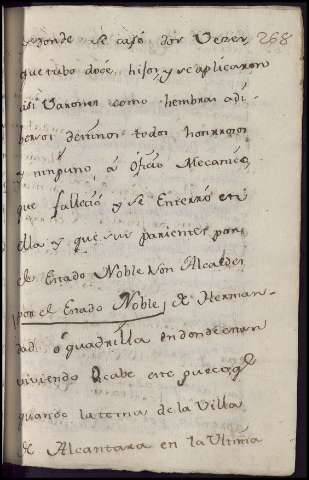 donde se casó dos Vezes, 268
que tubo doce hijos, y se aplicaron
asi Varones como hembras a di-
bersos destinos todos honrrosos
y ninguno, a Oficio Mecanico,
que fallecio y se Enterró en
ella y que sus parientes por
el Estado Noble son Alcaldes
por el Estado Noble, de Herman-
dad ó quadrilla en donde estan
viviendo
quando la toma de la Villa
de Alcantara en la Ultima